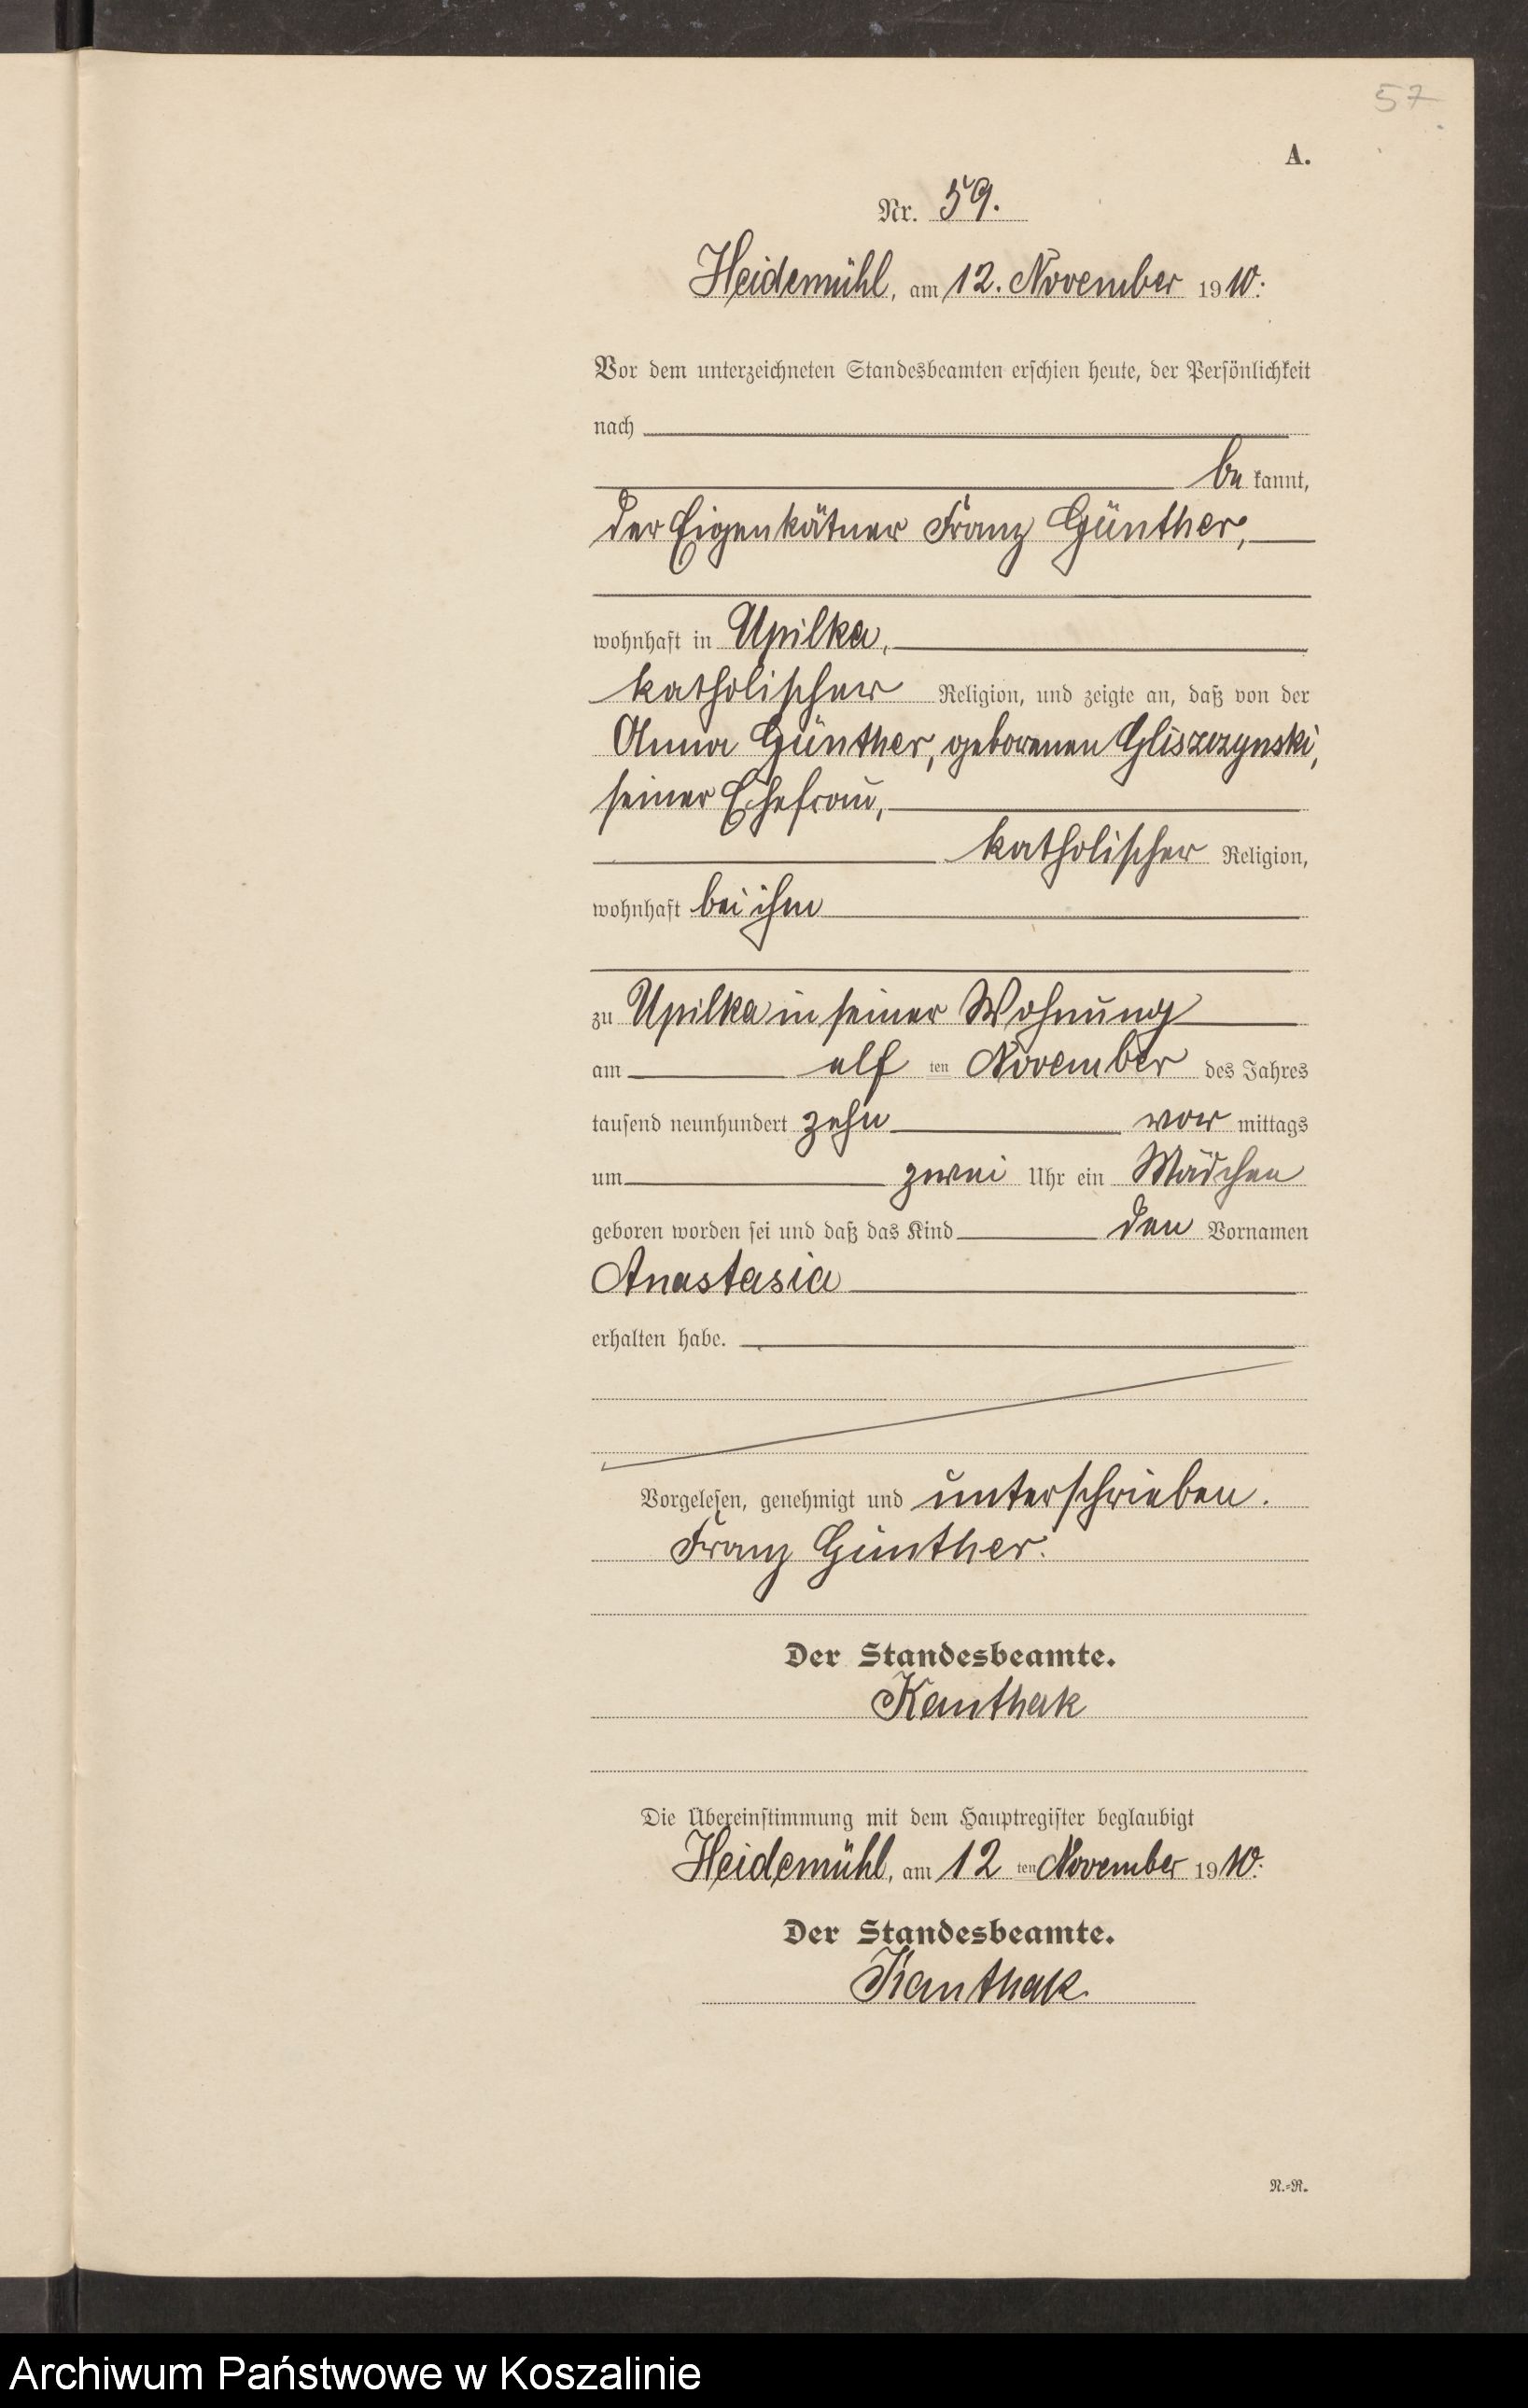 57
A.
Nr. 59.
Heidemühl, am 12. November 1910.
Vor dem unterzeichneten Standesbeamten erschien heute, der Persönlichkeit
nach
be kannt,
der Eigenkätner Franz Günther,
wohnhaft in Upilka,
katholischer Religion, und zeigte an, daß von der
Anna Günther, geborenen Gliszczynski,
seiner Ehefrau,
katholischer Religion,
wohnhaft bei ihm
zu Upilka in seiner Wohnung
am elf ten November des Jahres
tausend neunhundert zehn vor mittags
um zwei Uhr ein Mädchen
geboren worden sei und daß das Kind den Vornamen
Anastasia
erhalten habe.
Vorgelesen, genehmigt und unterschrieben.
Franz Günther.
Der Standesbeamte.
Kanthak
Die Übereinstimmung mit dem Hauptregister beglaubigt
Heidemühl, am 12 ten November 1910.
Der Standesbeamte.
Kanthak.
N.=R.
Archiwum Państwowe w Koszalinie